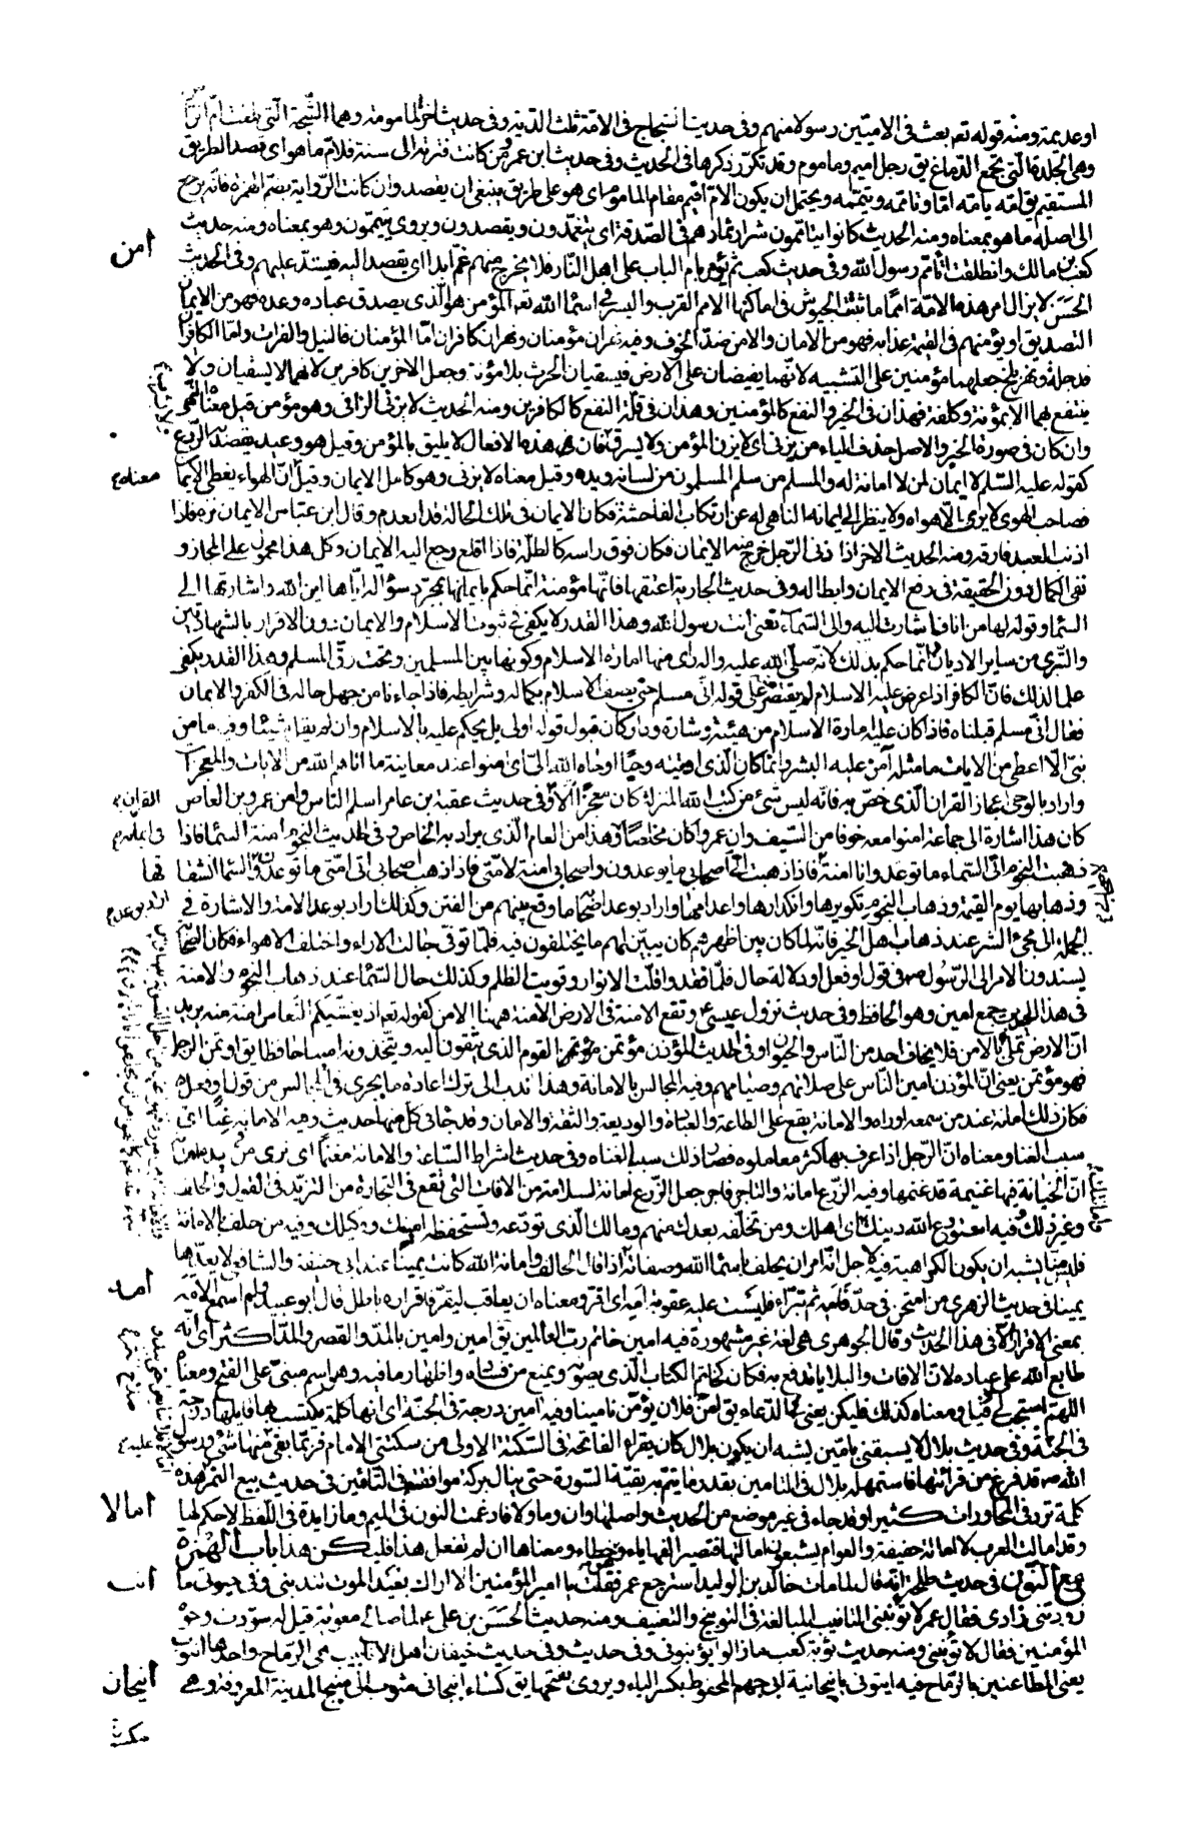 او عديمة ومنه قوله تع بعث فى الاميّين رسولا منهم وفى حديث الشجاج فى الامّة ثلث الدّية وفى حديث اخر المامومة وهما الشّجة الّتى بلغت امّ الرّاس
وهى الجلدة الّتى تجمع الدّماغ يق رجل اميم وماموم وقد تكرّر ذكرها فى الحديث وفى حديث ابن عمر من كانت فترته الى سنة فلامّ ما هو اى قصد الطريق
المستقيم يق امّه يامّه امّا وتامّمه وتيمّمه ويحتمل ان يكون الامّ اقيم مقام الماموم اى هو على طريق ينبغى ان يقصد وان كانت الرّواية بضمّ الهمزة فانّه يرجع
الى اصله ما هو بمعناه ومنه الحديث كانوا يتاممون شرار ثمارهم فى الصّدقة اى يتعمّدون ويقصدون ويروى يتيممون وهو بمعناه ومنه حديث
كعب بن مالك وانطلقت اتامّم رسول الله وفى حديث كعب ثم يؤمر بام الباب على اهل النّار فلا يخرج منهم غمّ ابدا اى يقصد اليه فيسدّ عليهم وفى الحديث
امن
الحسن لا يزال امر هذه الامّة امما ما ثبتت الجيوش فى اماكنها الامم القرب واليسر فى اسماء الله تع المؤمن هو الّذى يصدق عباده وعده فهو من الايمان
التصديق او يؤمنهم فى القيمة عذابه فهو من الامان والامن ضدّ الخوف وفيه نهران مؤمنان ونهران كافران امّا المؤمنان فالنيل والفرات وامّا الكافران
فدجلة ونهر بلخ جعلهما مؤمنين على التشبيه لانّهما يفيضان على الارض فيسقيان الحرث بلا مؤنة وجعل الاخرين كافرين لانهما لا يسقيان ولا
ينتفع بهما الا بمؤنة وكلفة فهذان فى الخير والنفع كالمؤمنين وهذان فى قلّة النفع كالكافرين ومنه الحديث لا يزنى الزانى وهو مؤمن قيل معناه النهى
وان كان فى صورة الخبر والاصل حذف الياء من يزنى اى لا يزن المؤمن ولا يسرق فان هذه الافعال لا يليق بالمؤمن وقيل هو وعيد يقصد به الرّدع
كقوله عليه السّلم لا ايمان لمن لا امانة له والمسلم من سلم المسلمون من لسانه ويده وقيل معناه لا يزنى وهو كامل الايمان وقيل انّ الهواء يغطى الايمان
معناه
فصاحب الهوى لا يرى الّا هواه ولا ينظر الى ايمانه الناهى له عن ارتكاب الفاحشة فكان الايمان فى تلك الحالة قد انعدم وقال ابن عباس الايمان نزه فاذا
اذنب العبد فارقه ومنه الحديث الاخر اذا زنى الرّجل خرج منه الايمان فكان فوق راسه كالظلّة فاذا اقلع رجع اليه الايمان وكل هذا محمول على المجاز و
نفى الكمال دون الحقيقة فى رفع الايمان وابطاله وفى حديث الجارية اعتقها فانّها مؤمنة انّما حكم بايمانها بمجرّد سؤاله ايّاها اين الله واشارتها الى
السّماء وقوله لها من انا فاشارت اليه والى السّماء تعنى انت رسول الله وهذا القدر لا يكفى فى ثبوت الاسلام والايمان دون الاقرار بالشّهادتين
والتّبرّى من ساير الاديان وانّما حكم بذلك لانّه صلّى الله عليه واله راى منها امارة الاسلام وكونها بين المسلمين وتحت رقّ المسلم وهذا القدر يكفى
علما لذلك فانّ الكافر اذا عرض عليه الاسلام لم يقتصر على قوله انّى مسلم حتى يصف الاسلام بكماله وشرايطه فاذا جاءنا من جهل حاله فى الكفر والايمان
فقال انّى مسلم قبلناه فاذا كان عليه امارة الاسلام من هيئة وشارة ودار كان قبول قوله اولى بل يحكم عليه بالاسلام وان لم يقل شيئا وفيه ما من
نبىّ الّا اعطى من الايات ما مثله آمن عليه البشر وانّما كان الّذى اوتيته وحيًا اوحاه الله الىّ اى امنوا عند معاينة ما اتاهم الله من الايات والمعجزات
واراد بالوحى اعجاز القران الّذى خصّ به فانّه ليس شئ من كتب الله المنزلة كان معجزًا الّا وفى حديث عقبة بن عامر اسلم الناس وامن عمرو بن العاص
القران
كان هذا اشارة الى جماعة امنوا معه خوفا من السّيف وانّ عمروا كان مخلصًا وهذا من العام الّذى يراد به الخاص وفى الحديث النجوم امنة السّماء فاذا
ذهبت النجوم اتى السّماء ما توعد وانا امنة فاذا ذهبت اتى اصحابى ما يوعدون واصحابى امنة لامّتى فاذا ذهب اصحابى اتى امّتى ما توعدون السّماء انشقاقها
وذهابها يوم القيمة وذهاب النجوم تكويرها وانكدارها واعدامها واراد بوعد اصحابه ما وقع بينهم من الفتن وكذلك اراد بوعد الامّة والاشارة فى
الجملة الى مجئ الشر عند ذهاب اهل الخير فانّه لما كان بين اظهرهم كان يبيّن لهم ما يختلفون فيه فلمّا توفى جالت الاراء واختلف الاهواء فكان الصّحابة
يسندون الامر الى الرّسول ص فى قول او فعل او دلالة حال فلمّا فقد قلّت الانوار وقويت الظلم وكذلك حال السّماء عند ذهاب النجوم والامنة
فى هذا الحديث جمع امين وهو الحافظ وفى حديث نزول عيسى ع وتقع الامنة فى الارض الامنة ههنا الامن كقوله تع اذ يغشّيكم النّعاس امنة منه يريد
انّ الارض تملئ بالامن فلا يخاف احد من النّاس والحيوان وفى الحديث المؤذن مؤتمن مؤتمن القوم الذى يثقون اليه ويتّخذونه امينا حافظا يق اوتمن الرجل
فهو مؤتمن يعنى انّ المؤذن امين النّاس على صلاتهم وصيامهم وفيه المجالس بالامانة وهذا ندب الى ترك اعادة ما يجرى فى المجالس من قول او فعل
فكان ذلك امانة عند من سمعه او راه والامانة يقع على الطاعة والعبادة والوديعة والثقة والامان وقد جاء فى كل منها حديث وفيه الامانة غنًا اى
سبب الغنا ومعناه انّ الرّجل اذا عرف بها كثر معاملوه فصار ذلك سببا لغناه وفى حديث اشراط السّاعة والامانة مغنمًا اى يرى من فى يده امانة
انّ الخيانة فيها غنيمة قد غنمها وفيه الزّرع امانة والتاجر فاجر جعل الزّرع امانة لسلامته من الافات التى تقع فى التجارة من التزيّد فى القول والحلف
وغير ذلك وفيه استودع الله دينك وامانتك اى اهلك ومن تخلّفه بعدك منهم ومالك الّذى تودّعه وتستحفظه امينك ووكيلك وفيه من حلف بالامانة
فليس منّا يشبه ان يكون الكراهية فيه لاجل انّه امر ان يحلف باسماء الله وصفاته اذا قال الحالف وامانة الله كانت يمينا عند ابى حنيفة والشافعى لا يعدّها
يمينا فى حديث الزهرى من امتحن فى حدّ فامه ثم تبرّاء فليست عليه عقوبة امه اى اقرّ ومعناه ان يعاقب ليقرّ فاقراره باطل قال ابو عبيد ولم اسمع الامه
امه
بمعنى الاقرار الّا فى هذا الحديث وقال الجوهرى هى لغة غير مشهورة فيه امين خاتم ربّ العالمين يق امين وامين بالمدّ والقصر والمدّ اكثر اى انّه
طابع الله على عباده لانّ الافات والبلايا تدفع به فكان كخاتم الكتاب الّذى يصونه ويمنع من فساده واظهار ما فيه وهو اسم مبنىّ على الفتح ومعناه
اللهمّ استجب لى وقيل ومعناه كذلك فليكن يعنى الدّعاء يق امّن فلان يؤمّن تامينا وفيه امين درجة فى الجنّة اى انها كلمة يكتسب بها قايلها درجة
فى الجنّة وفى حديث بلال لا يسبقنى بامين يشبه ان يكون بلال كان يقراء الفاتحة فى السّكتة الاولى من سكتتى الامام فربّما بقى منها شئ ورسول
الله ص قد فرغ من قرائتها فاستمهله بلال فى التامين بقدر ما يتمّ به بقيّة السّورة حتى ينال بركة موافقته فى التامين فى حديث بيع الثمر هذه
كلمة ترد فى المحاورات كثيرا وقد جاء فى غير موضع من الحديث واصلها وان وما ولا فادغمت النون فى الميم وما زايدة فى اللفظ لا حكم لها
امالا
وقد امالت العرب لا امالة خفيفة والعوام يشبعون امالتها فتصير الفها ياء وهو خطاء ومعناها ان لم تفعل هذا فليكن هذا باب الهمزة
مع النّون فى حديث طلحة انّه قال لما مات خالد بن الوليد استرجع عمر فقلت يا امير المؤمنين الا اراك بعيد الموت تندبنى وفى حيوتى ما
انب
زودتنى زادى فقال عمر لا تؤنّبنى التانيب المبالغة فى التوبيخ والتعنيف ومنه حديث الحسن بن على ع لما صالح معوية قيل له سوّدت وجوه
المؤمنين فقال لا تؤنّبنى ومنه حديث توبة كعب ما زالوا يؤنّبونى وفى حديث وفى حديث خيفان اهل الانابيب هى الرّماح واحدها انبوب
يعنى المطاعنين بالرّماح فيه ايتونى بانبجانية ابى جهم المحفوظ بكسر الباء ويروى بفتحها يق كساء انبجانى منسوب الى منبج المدينة المعروفة وهى
انبجان
مكسورة